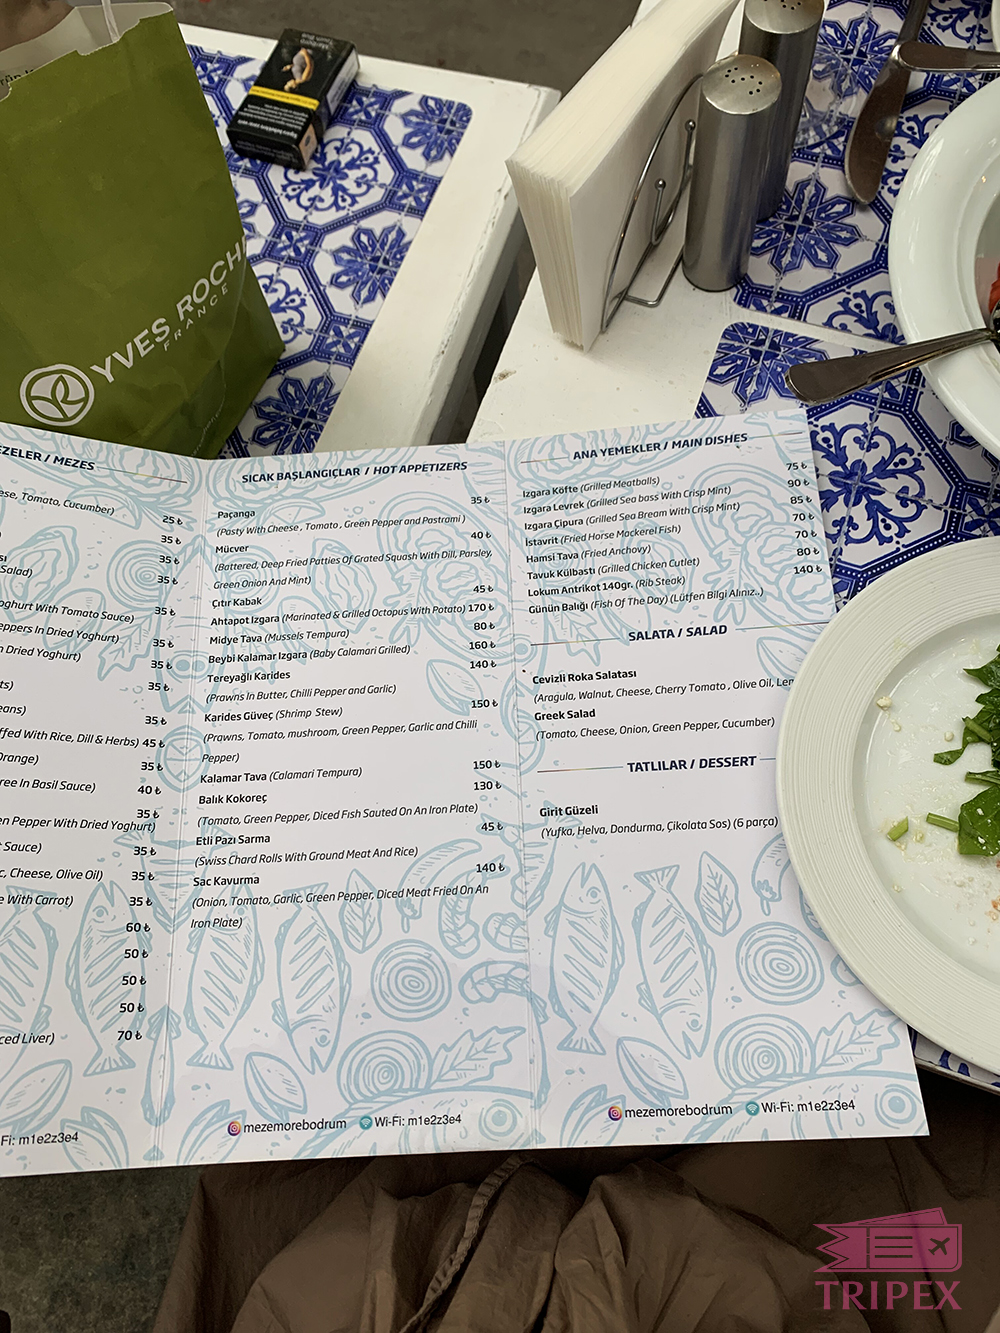 YVES ROCH
FRANCE
EZELER / MEZES
ese, Tomato, Cucumber)
25 ₺
35 ₺
35 ₺
Salad)
35 ₺
oghurt With Tomato Sauce)
35 ₺
eppers In Dried Yoghurt)
35 ₺
n Dried Yoghurt)
35 ₺
ts)
35 ₺
eans)
35 ₺
ffed With Rice, Dill & Herbs) 45 ₺
Orange)
35 ₺
ree In Basil Sauce)
40 ₺
35 ₺
en Pepper With Dried Yoghurt)
t Sauce)
35 ₺
c, Cheese, Olive Oil)
35 ₺
e With Carrot)
35 ₺
60 ₺
50 ₺
50 ₺
50 ₺
ced Liver)
70 ₺
Fi: m1e2z3e4
SICAK BAŞLANGIÇLAR / HOT APPETIZERS
Paçanga 35 ₺
(Pasty With Cheese , Tomato , Green Pepper and Pastrami )
Mücver 40 ₺
(Battered, Deep Fried Patties Of Grated Squash With Dill, Parsley,
Green Onion And Mint)
Çıtır Kabak 45 ₺
Ahtapot Izgara (Marinated & Grilled Octopus With Potato) 170 ₺
Midye Tava (Mussels Tempura) 80 ₺
Beybi Kalamar Izgara (Baby Calamari Grilled) 160 ₺
Tereyağlı Karides 140 ₺
(Prawns In Butter, Chilli Pepper and Garlic)
Karides Güveç (Shrimp Stew) 150 ₺
(Prawns, Tomato, mushroom, Green Pepper, Garlic and Chilli
Pepper)
Kalamar Tava (Calamari Tempura) 150 ₺
Balık Kokoreç 130 ₺
(Tomato, Green Pepper, Diced Fısh Sauted On An Iron Plate)
Etli Pazı Sarma 45 ₺
(Swiss Chard Rolls With Ground Meat And Rice)
Sac Kavurma 140 ₺
(Onion, Tomato, Garlic, Green Pepper, Diced Meat Fried On An
Iron Plate)
mezemorebodrum Wi-Fi: m1e2z3e4
ANA YEMEKLER / MAIN DISHES
Izgara Köfte (Grilled Meatballs) 75 ₺
Izgara Levrek (Grilled Sea bass With Crisp Mint) 90 ₺
Izgara Çipura (Grilled Sea Bream With Crisp Mint) 85 ₺
İstavrit (Fried Horse Mackerel Fish) 70 ₺
Hamsi Tava (Fried Anchovy) 70 ₺
Tavuk Külbastı (Grilled Chicken Cutlet) 80 ₺
Lokum Antrikot 140gr. (Rib Steak) 140 ₺
Günün Balığı (Fish Of The Day) (Lütfen Bilgi Alınız..)
SALATA / SALAD
Cevizli Roka Salatası
(Aragula, Walnut, Cheese, Cherry Tomato , Olive Oil, Lem
Greek Salad
(Tomato, Cheese, Onion, Green Pepper, Cucumber)
TATLILAR / DESSERT
Girit Güzeli
(Yufka, Helva, Dondurma, Çikolata Sos) (6 parça)
mezemorebodrum Wi-Fi: m1e2z3e4
TRIPEX